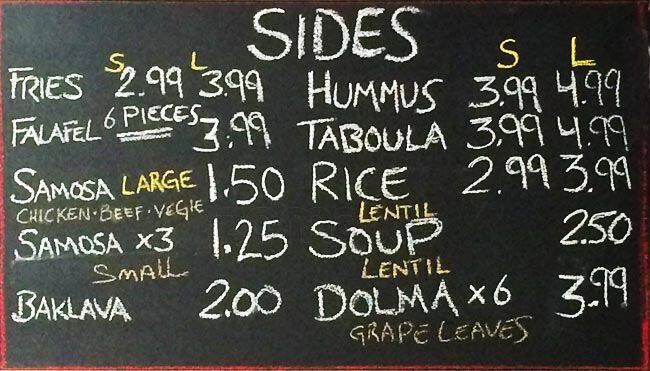 SIDES
S L
FRIES 2.99 3.99
FALAFEL 6 PIECES 3.99
SAMOSA LARGE 1.50
CHICKEN·BEEF·VEGIE
SAMOSA x3 1.25
SMALL
BAKLAVA 2.00
S L
HUMMUS 3.99 4.99
TABOULA 3.99 4.99
RICE 2.99 3.99
LENTIL
SOUP 2.50
LENTIL
DOLMA x6 3.99
GRAPE LEAVES